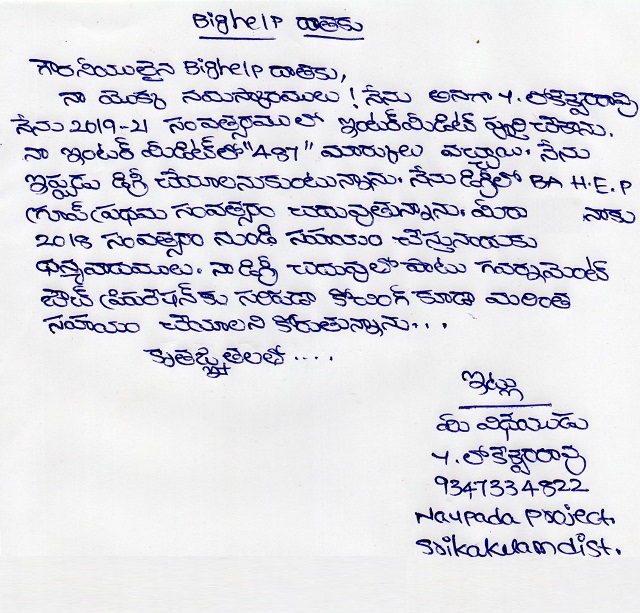 Bighelp దాతకు
గౌరవనీయులైన Bighelp దాతకు,
నా యొక్క నమస్కారములు ! నేను అనగా Y. లోకేశ్వరరావు
నేను 2019-21 సంవత్సరములో ఇంటర్మీడిట్ పూర్తి చేశాను.
నా ఇంటర్ మీడిట్‌లో "487" మార్కులు వచ్చాయి. నేను
ఇప్పుడు డిగ్రీ చేయాలనుకుంటున్నాను. నేను డిగ్రీలో BA H.E.P
గ్రూప్ ప్రథమ సంవత్సరం చదువుతున్నాను. మీరు నాకు
2018 సంవత్సరం నుండి సహాయం చేస్తునందుకు
ధన్యవాదములు. నా డిగ్రీ చదువులో పాటు గవర్నమెంట్
జాబ్ ప్రిపరేషన్‌కు సరిపడా కోచింగ్ కూడా మరింత
సహాయం చేయాలని కోరుతున్నాను...
కృతజ్ఞతలతో ....
ఇట్లు
మీ విధేయుడు
Y. లోకేశ్వరరావు
9347334822
Naupada Project.
Srikakulam dist.